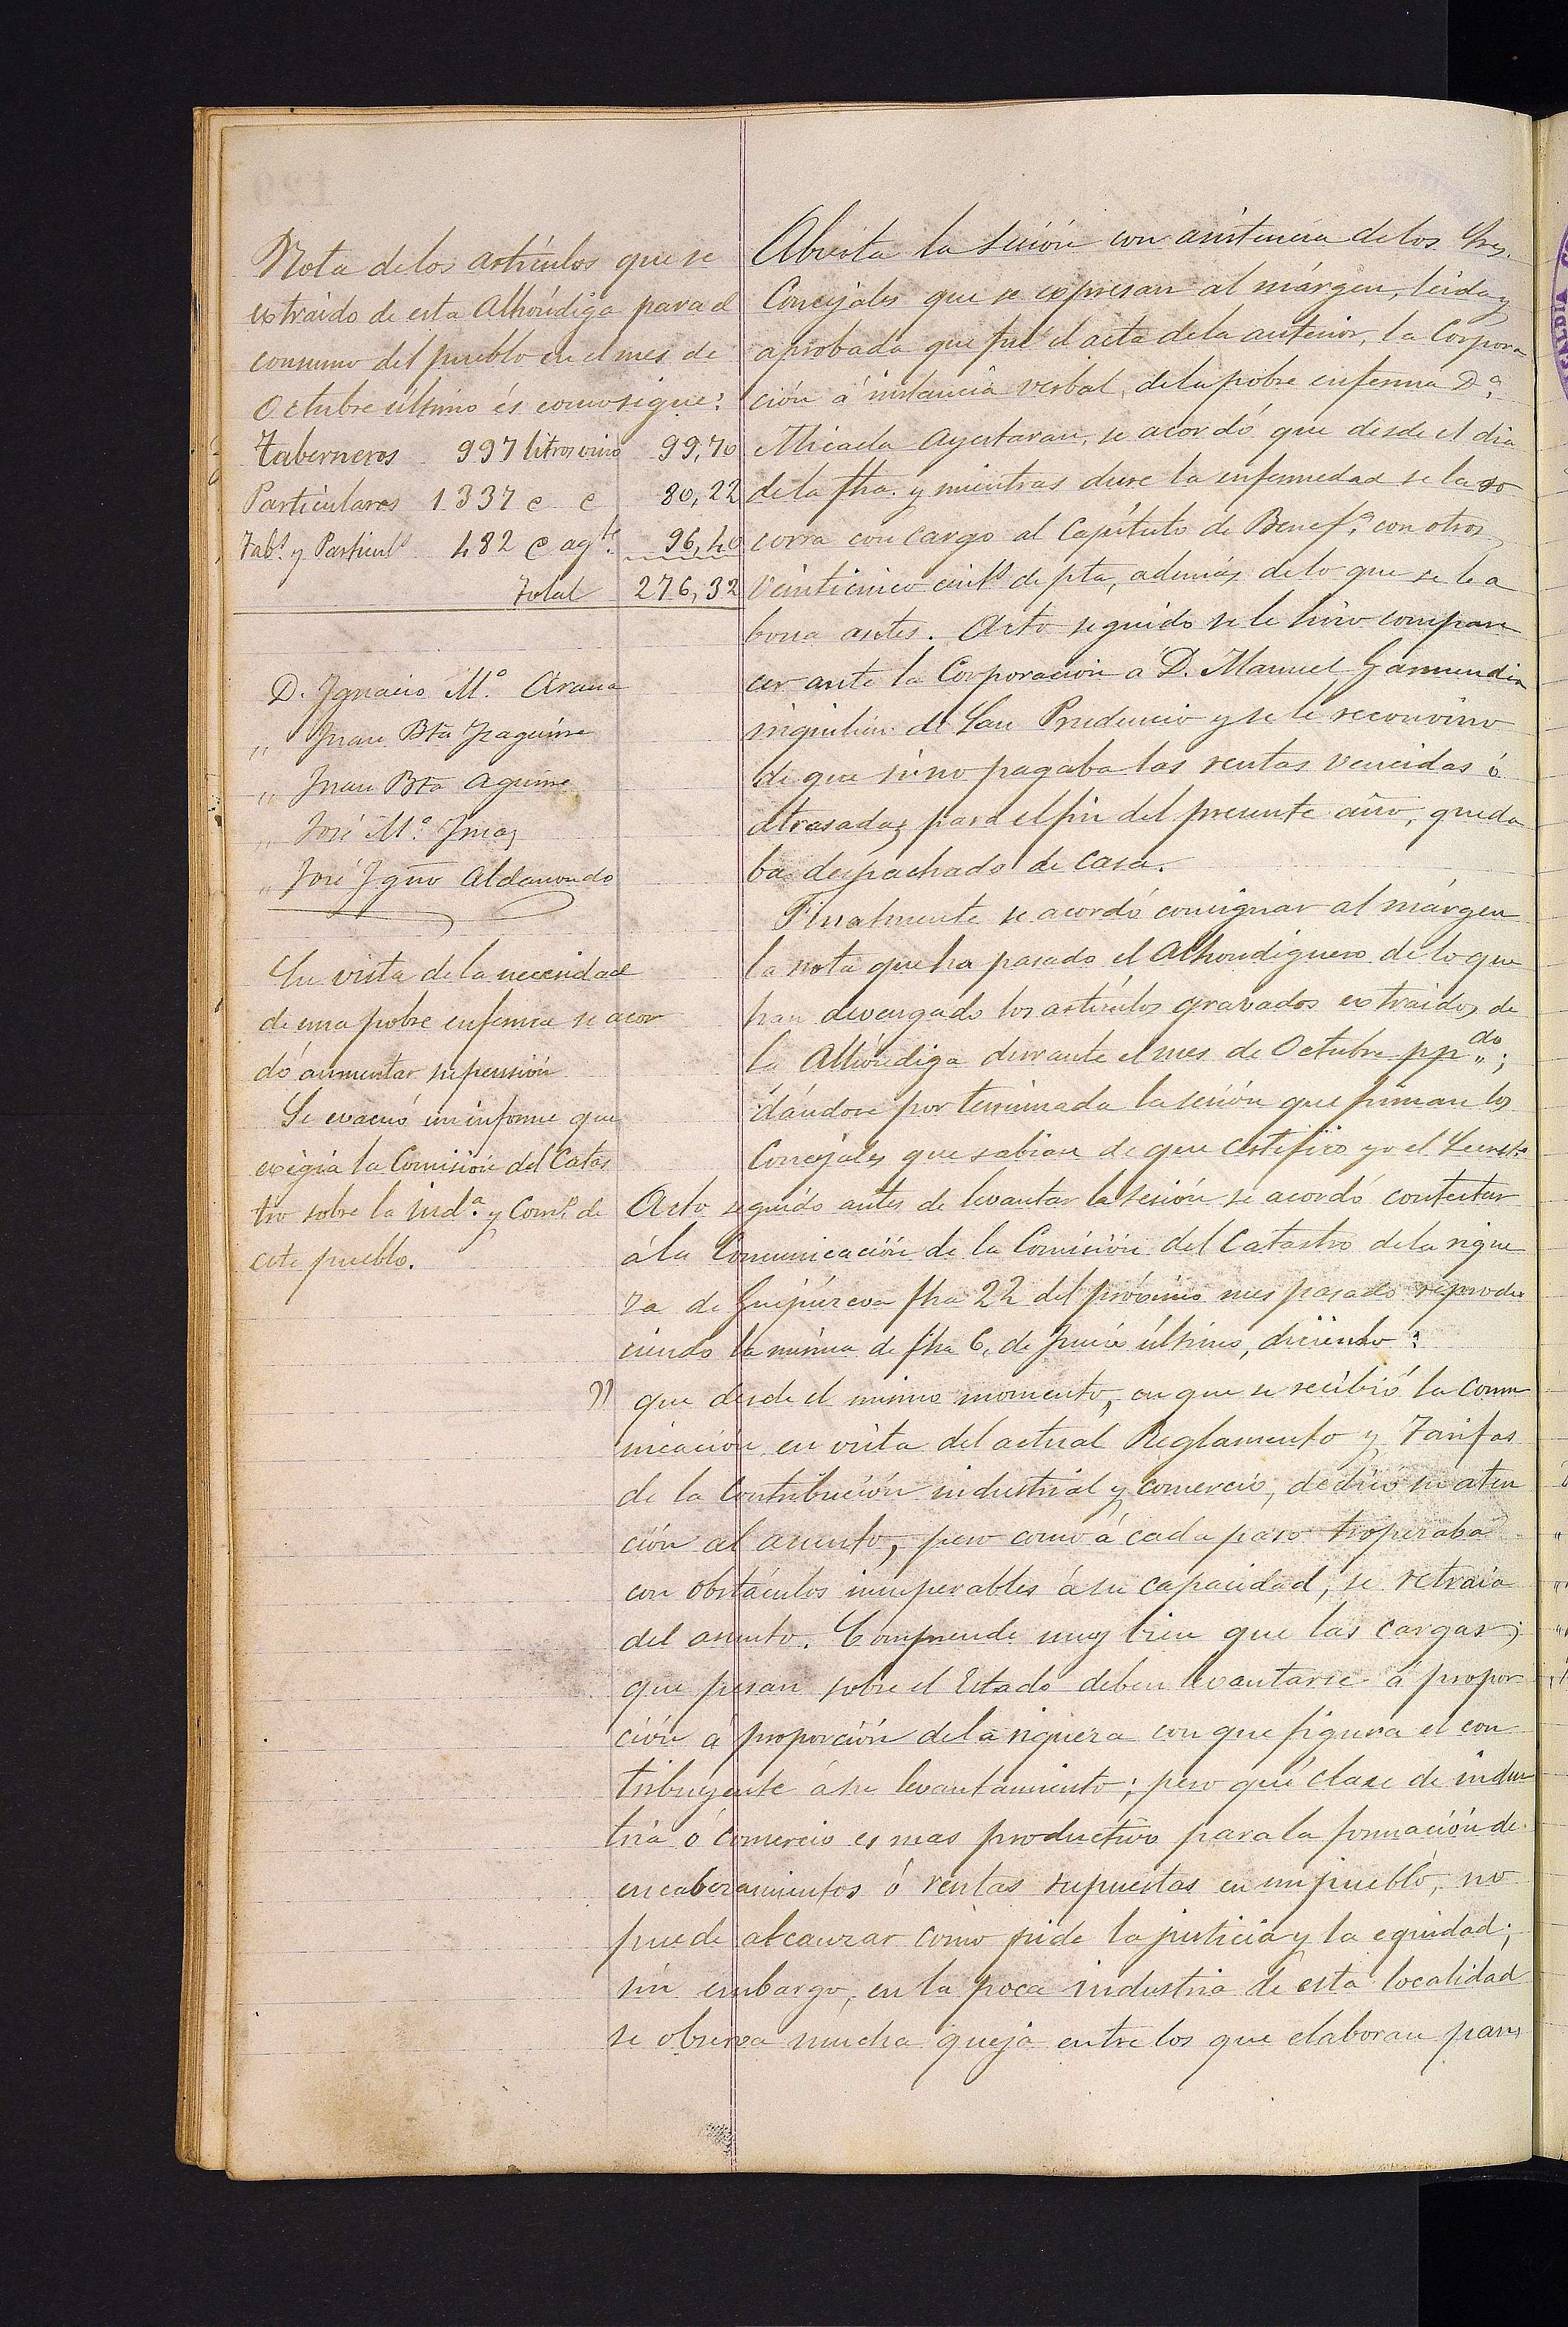 Nota de los artículos que se
extraido de esta Alhóndiga para el
consumo del pueblo en el mes de
Octubre último és como sigue:
Taberneros 997 litros vino 99,70
Particulares 1337 e e 80,22
Tab.s y Particul.s 482 e ag.te 96,40
Total 276,32
D. Ignacio M.ª Arana
,, Juan Bta Yraguirre
,, Juan Bta Aguirre
,, José M.ª Ymaz
,, José Ygnº Aldanondo
En vista de la necesidad
de una pobre enferma se acor
dó aumentar su pensión
Se evacuó un informe que
exigia la Comisión del Catas
tro sobre la Ind.ª y Com.º de
este pueblo.
Abierta la sesión con asistencia de los Sres.
Concejales que se expresan al márgen, leida y
aprobada que fué el acta de la anterior, la Corpora
ción á instancia verbal, de la pobre enferma D.ª
Micaela Ayestaran, se acordó que desde el dia
de la fha. y mientras dure la enfermedad se la so
corra con cargo al Capítulo de Benef.ª con otros
veinticinco cints de pta, además de lo que se le a
bona antes. Acto seguido se le hizo compare
cer ante la Corporación á D. Manuel Garmendia
inquilino de San Prudencio y se le reconvino
de que si no pagaba las rentas vencidas ó
atrasadas para el fin del presente año, queda
ba despachado de casa.
Finalmente se acordó consignar al márgen
la nota que ha pasado el Alhondiguero de lo que
han devengado los artículos gravados extraidos de
la Alhóndiga durante el mes de Octubre pp.do;
dándose por terminada la sesión que firman los
Concejales que sabian de que certifico yo el Secret.º
Acto seguido antes de levantar la sesión se acordó contestar
á la Comunicación de la Comisión del Catastro de la rique
za de Guipúzcoa fha 22 del próximo mes pasado reprodu
ciendo la misma de fha 6, de Junio último, diciendo:
" que desde el mismo momento, en que se recibió la comu
nicación en vista del actual Reglamento y Tarifas
de la Contribución industrial y comercio, dedicó su aten
ción al asunto, pero como á cada paso tropezaba
con obstáculos insuperables á su capacidad, se retraia
del asunto. Comprende muy bien que las cargas,
que pesan sobre el Estado deben levantarse á propor
ción a proporción de la riqueza con que figura el con
tribuyente á su levantamiento; pero qué clase de indus
tria ó comercio es mas productivo para la formación de
encabezamientos ó rentas supuestas en un pueblo, no
puede alcanzar como pide la justicia y la equidad;
sin embargo, en la poca industria de esta localidad
se observa mucha queja entre los que elaboran pan,